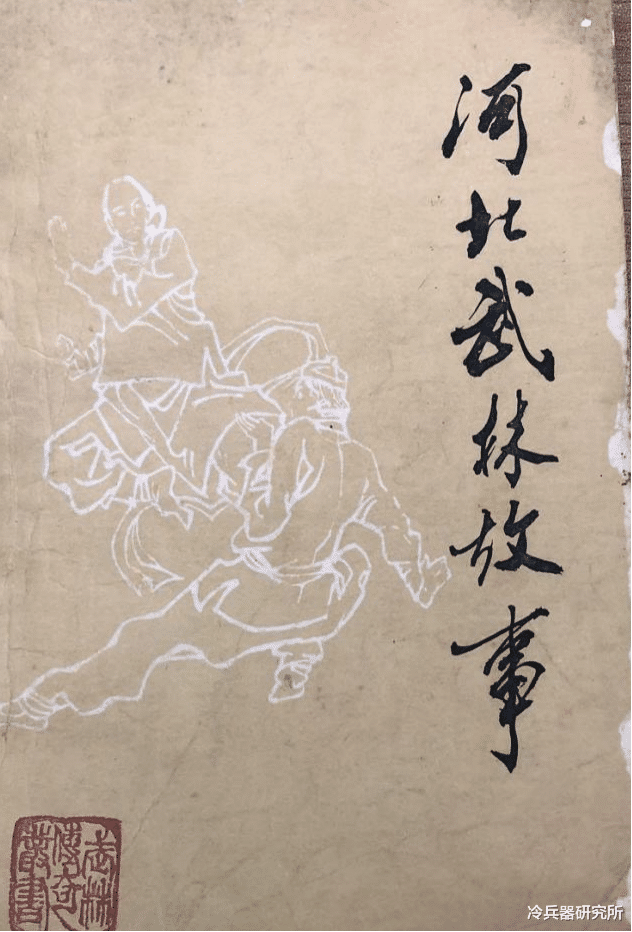 河北武林故事
武林
傳奇
叢書
冷兵器研究所